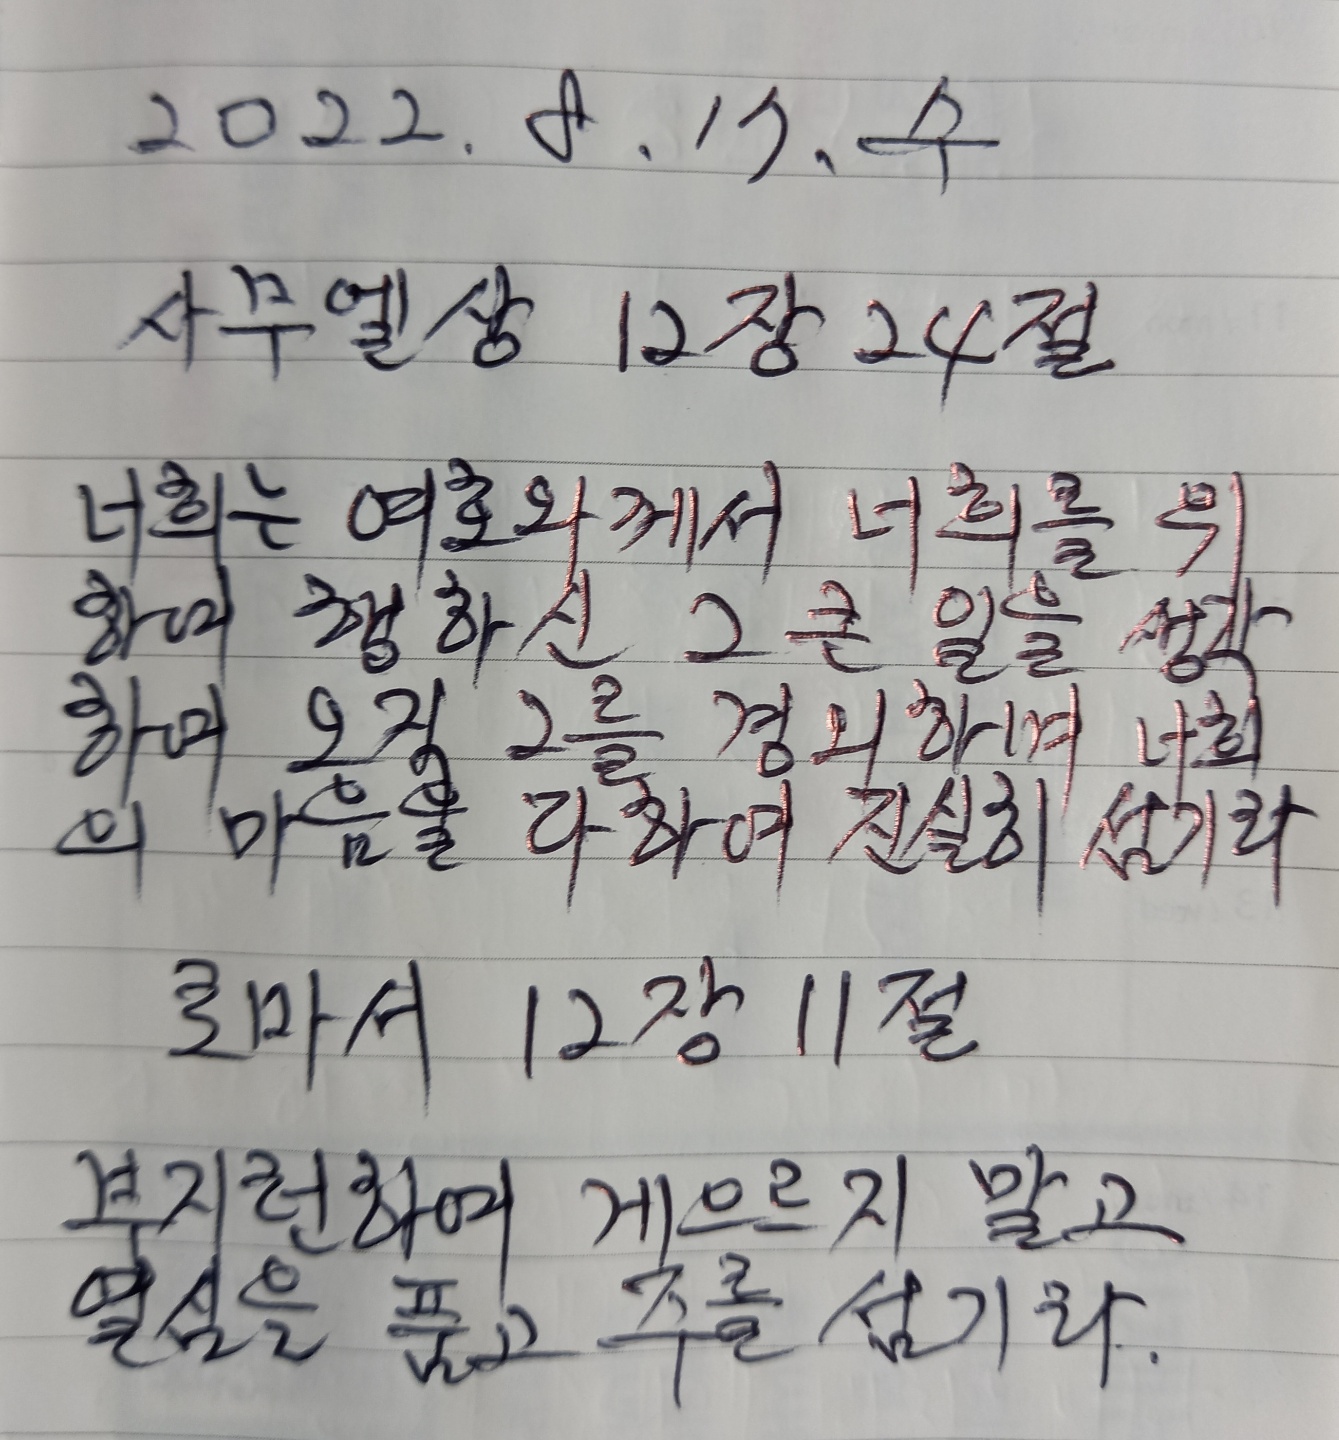 2022. 8. 17. 수
사무엘상 12장 24절
너희는 여호와께서 너희를 위
하여 행하신 그 큰 일을 생각
하여 오직 그를 경외하며 너희
의 마음을 다하여 진실히 섬기라
로마서 12장 11절
부지런하여 게으르지 말고
열심을 품고 주를 섬기라.